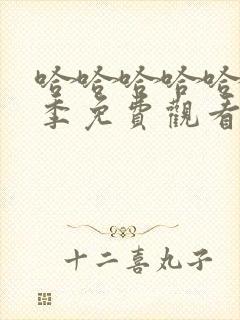 哈哈哈哈哈
季免費觀看
十二喜丸子